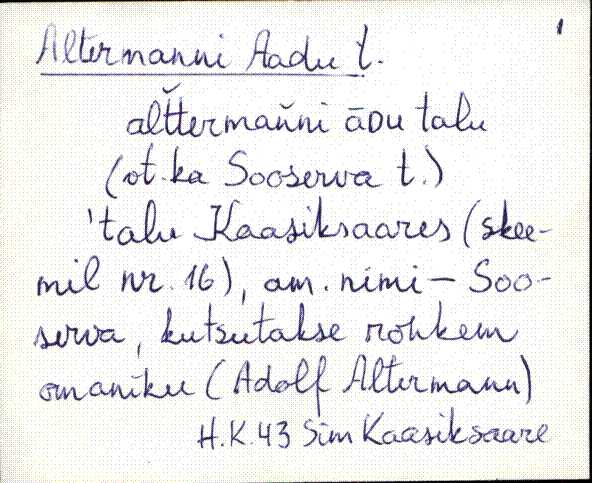 1
Altermanni Aadu t.
alt̆termaňni āᴅu talu
(ot. ka Sooserva t.)
'talu Kaasiksaares (skee-
mil nr. 16), am. nimi – Soo-
serva, kutsutakse rohkem
omaniku (Adolf Altermann)
H.K. 43 Sim Kaasiksaare